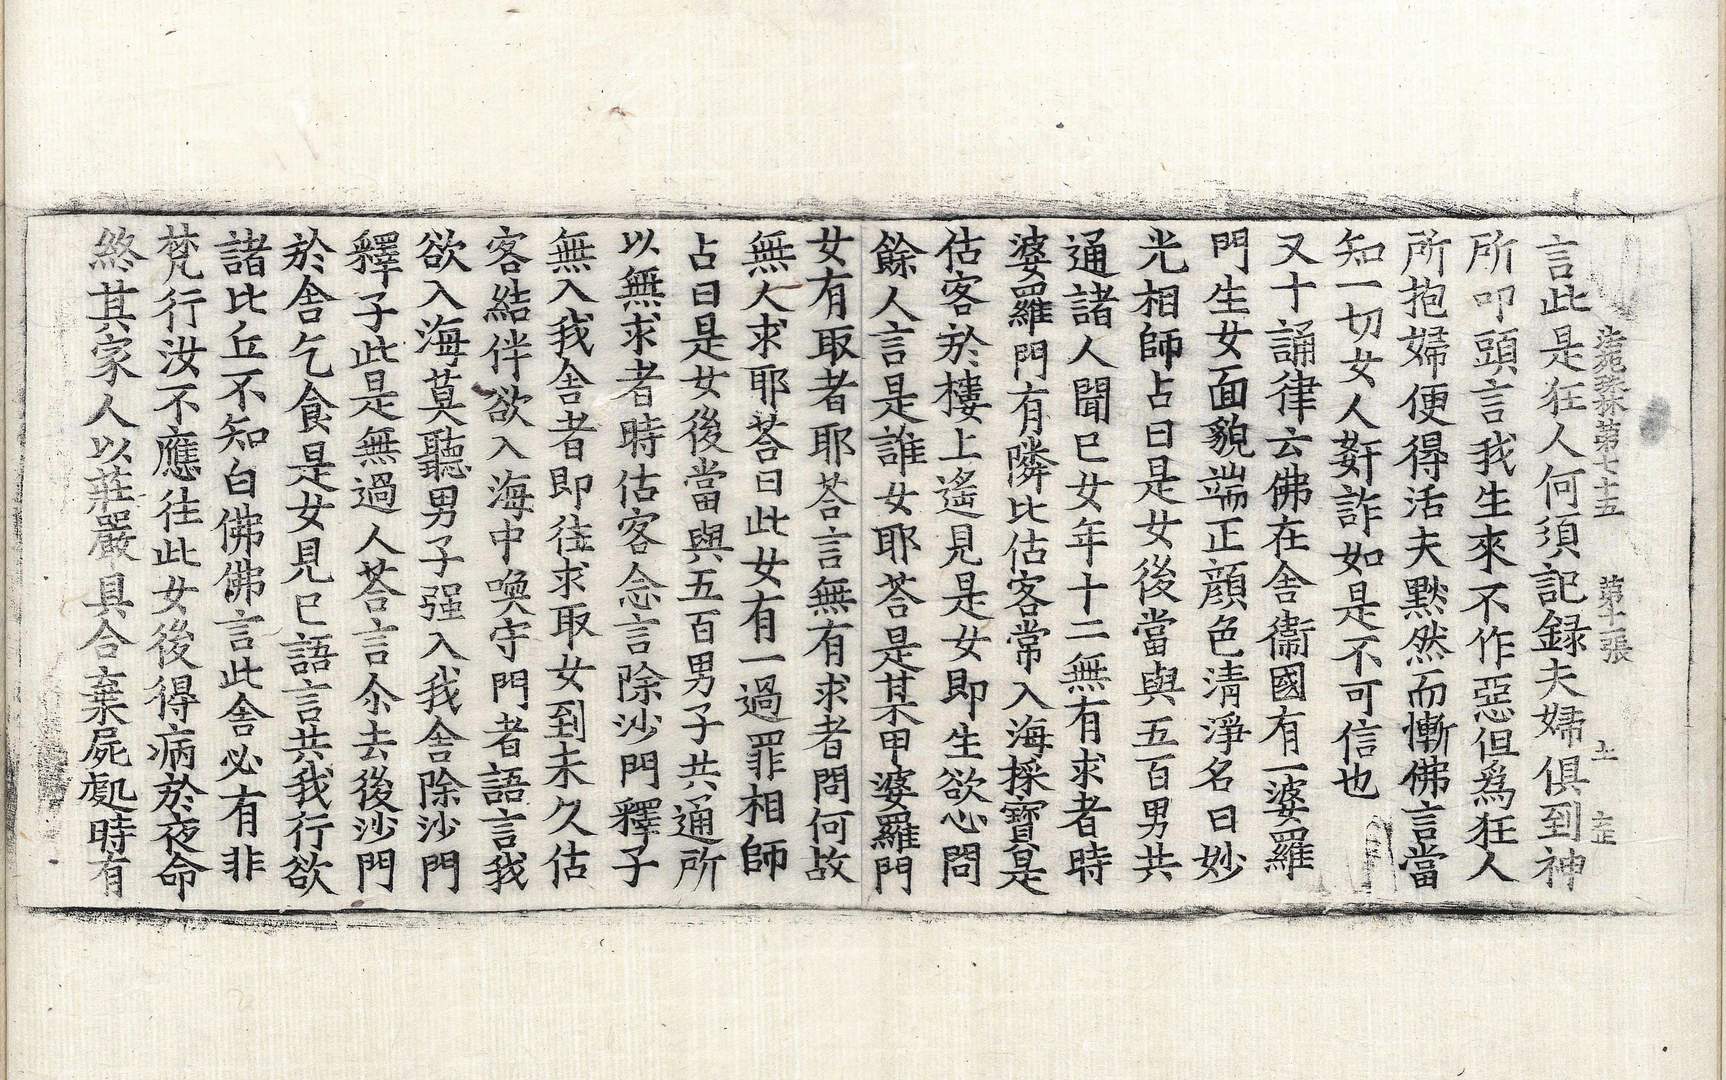 法苑珠林第七十五 第十張 𡈽
言此是狂人何須記録夫婦俱到神
所叩頭言我生來不作惡但爲狂人
所抱婦便得活夫默然而慚佛言當
知一切女人姧詐如是不可信也
又十誦律云佛在舍衞國有一婆羅
門生女面貌端正顔色清淨名曰妙
光相師占曰是女後當與五百男共
通諸人聞已女年十二無有求者時
婆羅門有隣比估客常入海採寶是
估客於樓上遙見是女即生欲心問
餘人言是誰女耶荅是某甲婆羅門
女有取者耶荅言無有求者問何故
無人求耶荅曰此女有一過罪相師
占曰是女後當與五百男子共通所
以無求者時估客念言除沙門釋子
無入我舍者即往求取女到未久估
客結伴欲入海中喚守門者語言我
欲入海莫聽男子强入我舍除沙門
釋子此是無過人荅言尒去後沙門
於舍乞食是女見已語言共我行欲
諸比丘不知白佛佛言此舍必有非
梵行汝不應往此女後得病於夜命
終其家人以莊嚴具合棄屍處時有